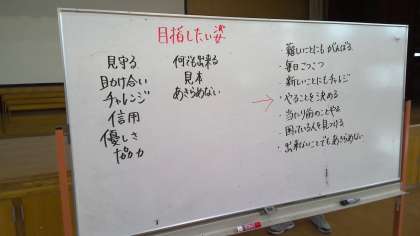 目指したい姿
見守る
助け合い
チャレンジ
信用
優しさ
協力
何でも出来る
見本
あきらめない
・難しいことにもがんばる
・毎日こつこつ
・新しいことにもチャレジ
→・やることを決める
・当たり前のことやる
・困っている人を見つける
・出来ないことでもあきらめない